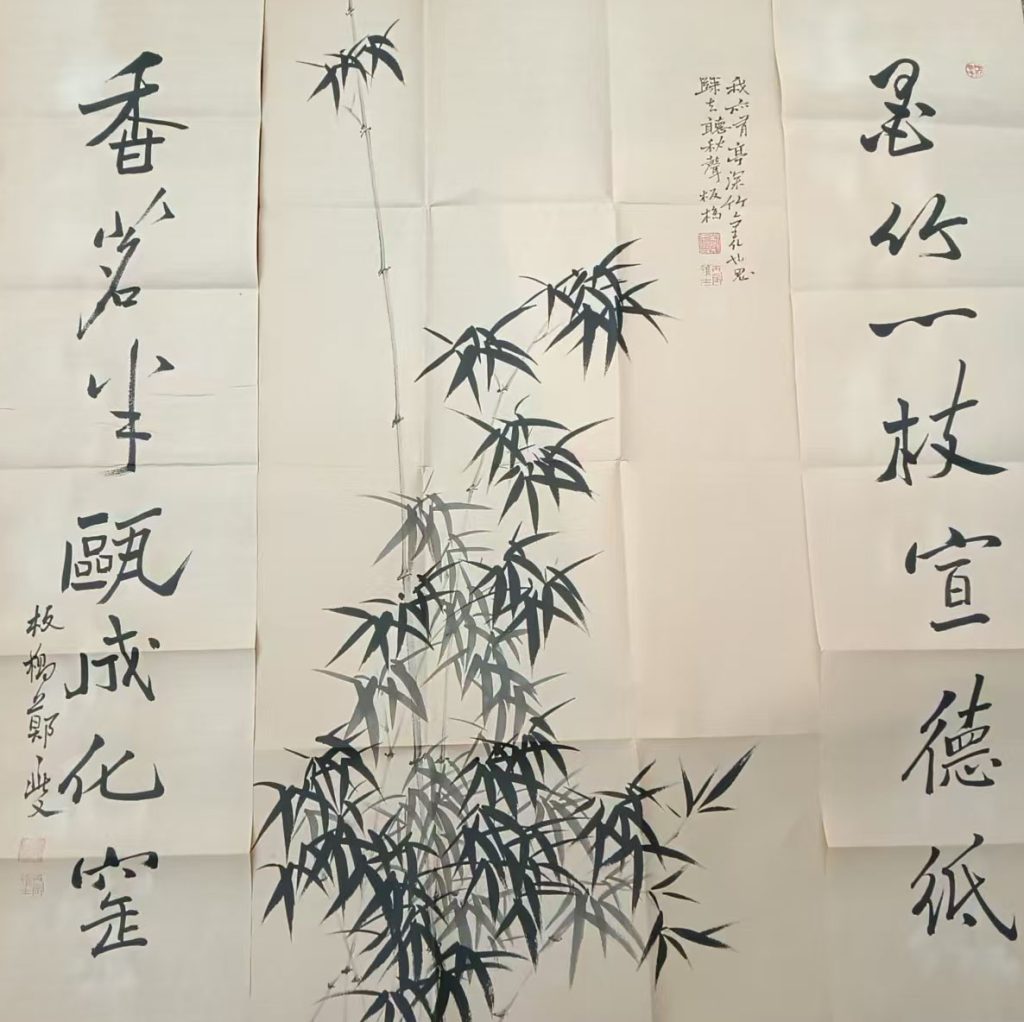 墨竹一枝宣德紙
我亦有亭深竹裏也思
歸去聽秋聲板橋
香茗半甌成化窑
板橋鄭燮